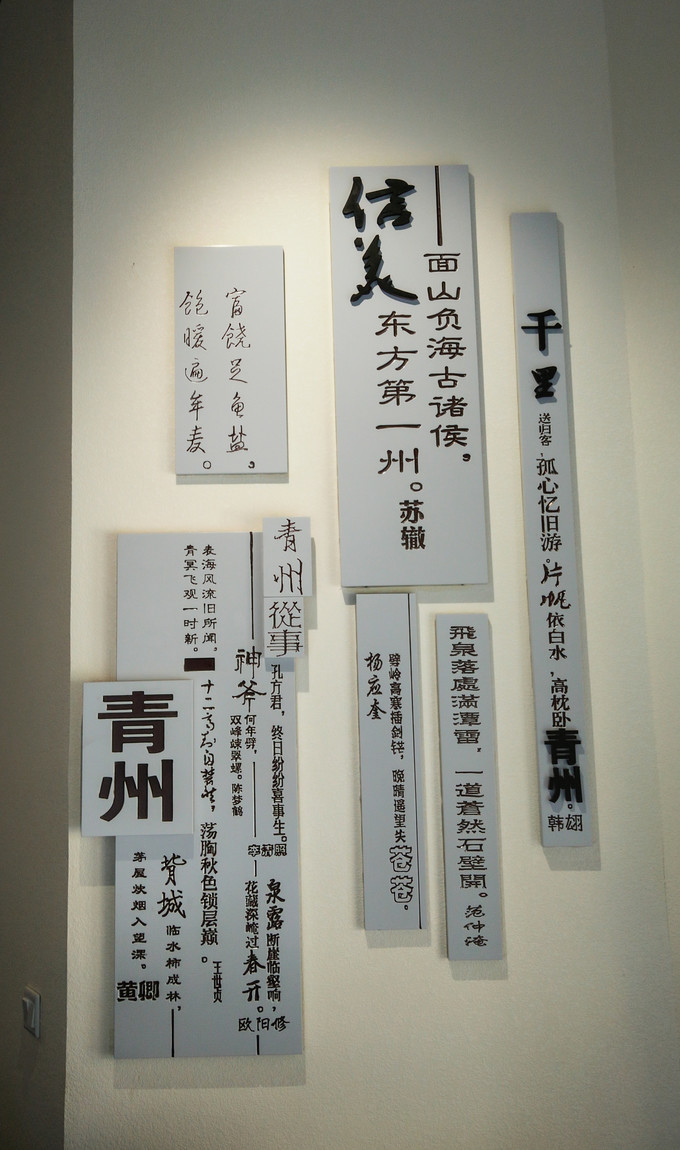 千里
送归客，孤心忆旧游。片帆依白水，高枕卧青州。
韩翃
信美
面山负海古诸侯，
东方第一州。
苏辙
富饶足鱼盐，
饱暖遍牟麦。
飛泉落處滿潭雷，一道蒼然石壁開。
范仲淹
劈岭高寒插剑铓，晚晴遥望失苍苍。
杨应奎
青州
從事
孔方君，终日纷纷喜事生。
李清照
泉露断崖临壑响，
花藏深崦过春开。
欧阳修
神斧何年劈，
双峰竦翠螺。
陈梦鹤
表海风流旧所闻，
青冥飞观一时新。
荡胸秋色锁层巅。
王世贞
青州
背城临水柿成林，
茅屋炊烟入望深。
黄卿